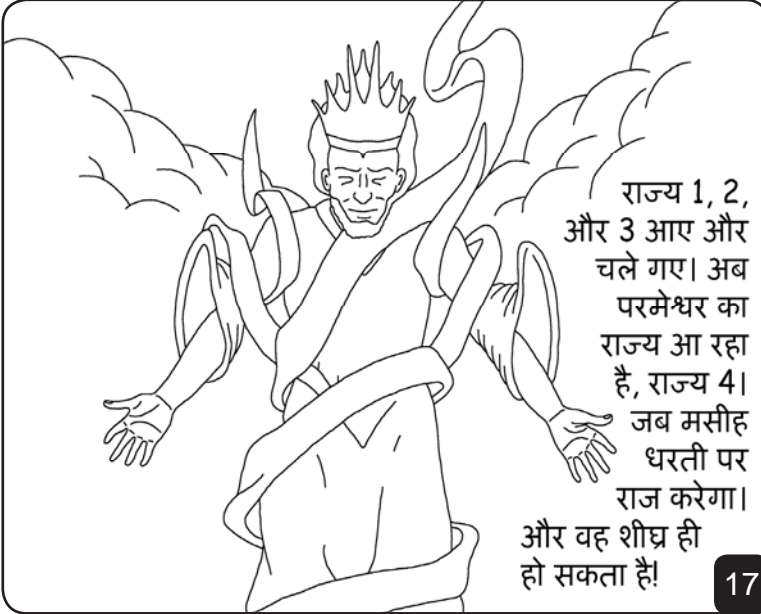 राज्य 1, 2,
और 3 आए और
चले गए। अब
परमेश्वर का
राज्य आ रहा
है, राज्य 4।
जब मसीह
धरती पर
राज करेगा।
और वह शीघ्र ही
हो सकता है!
17